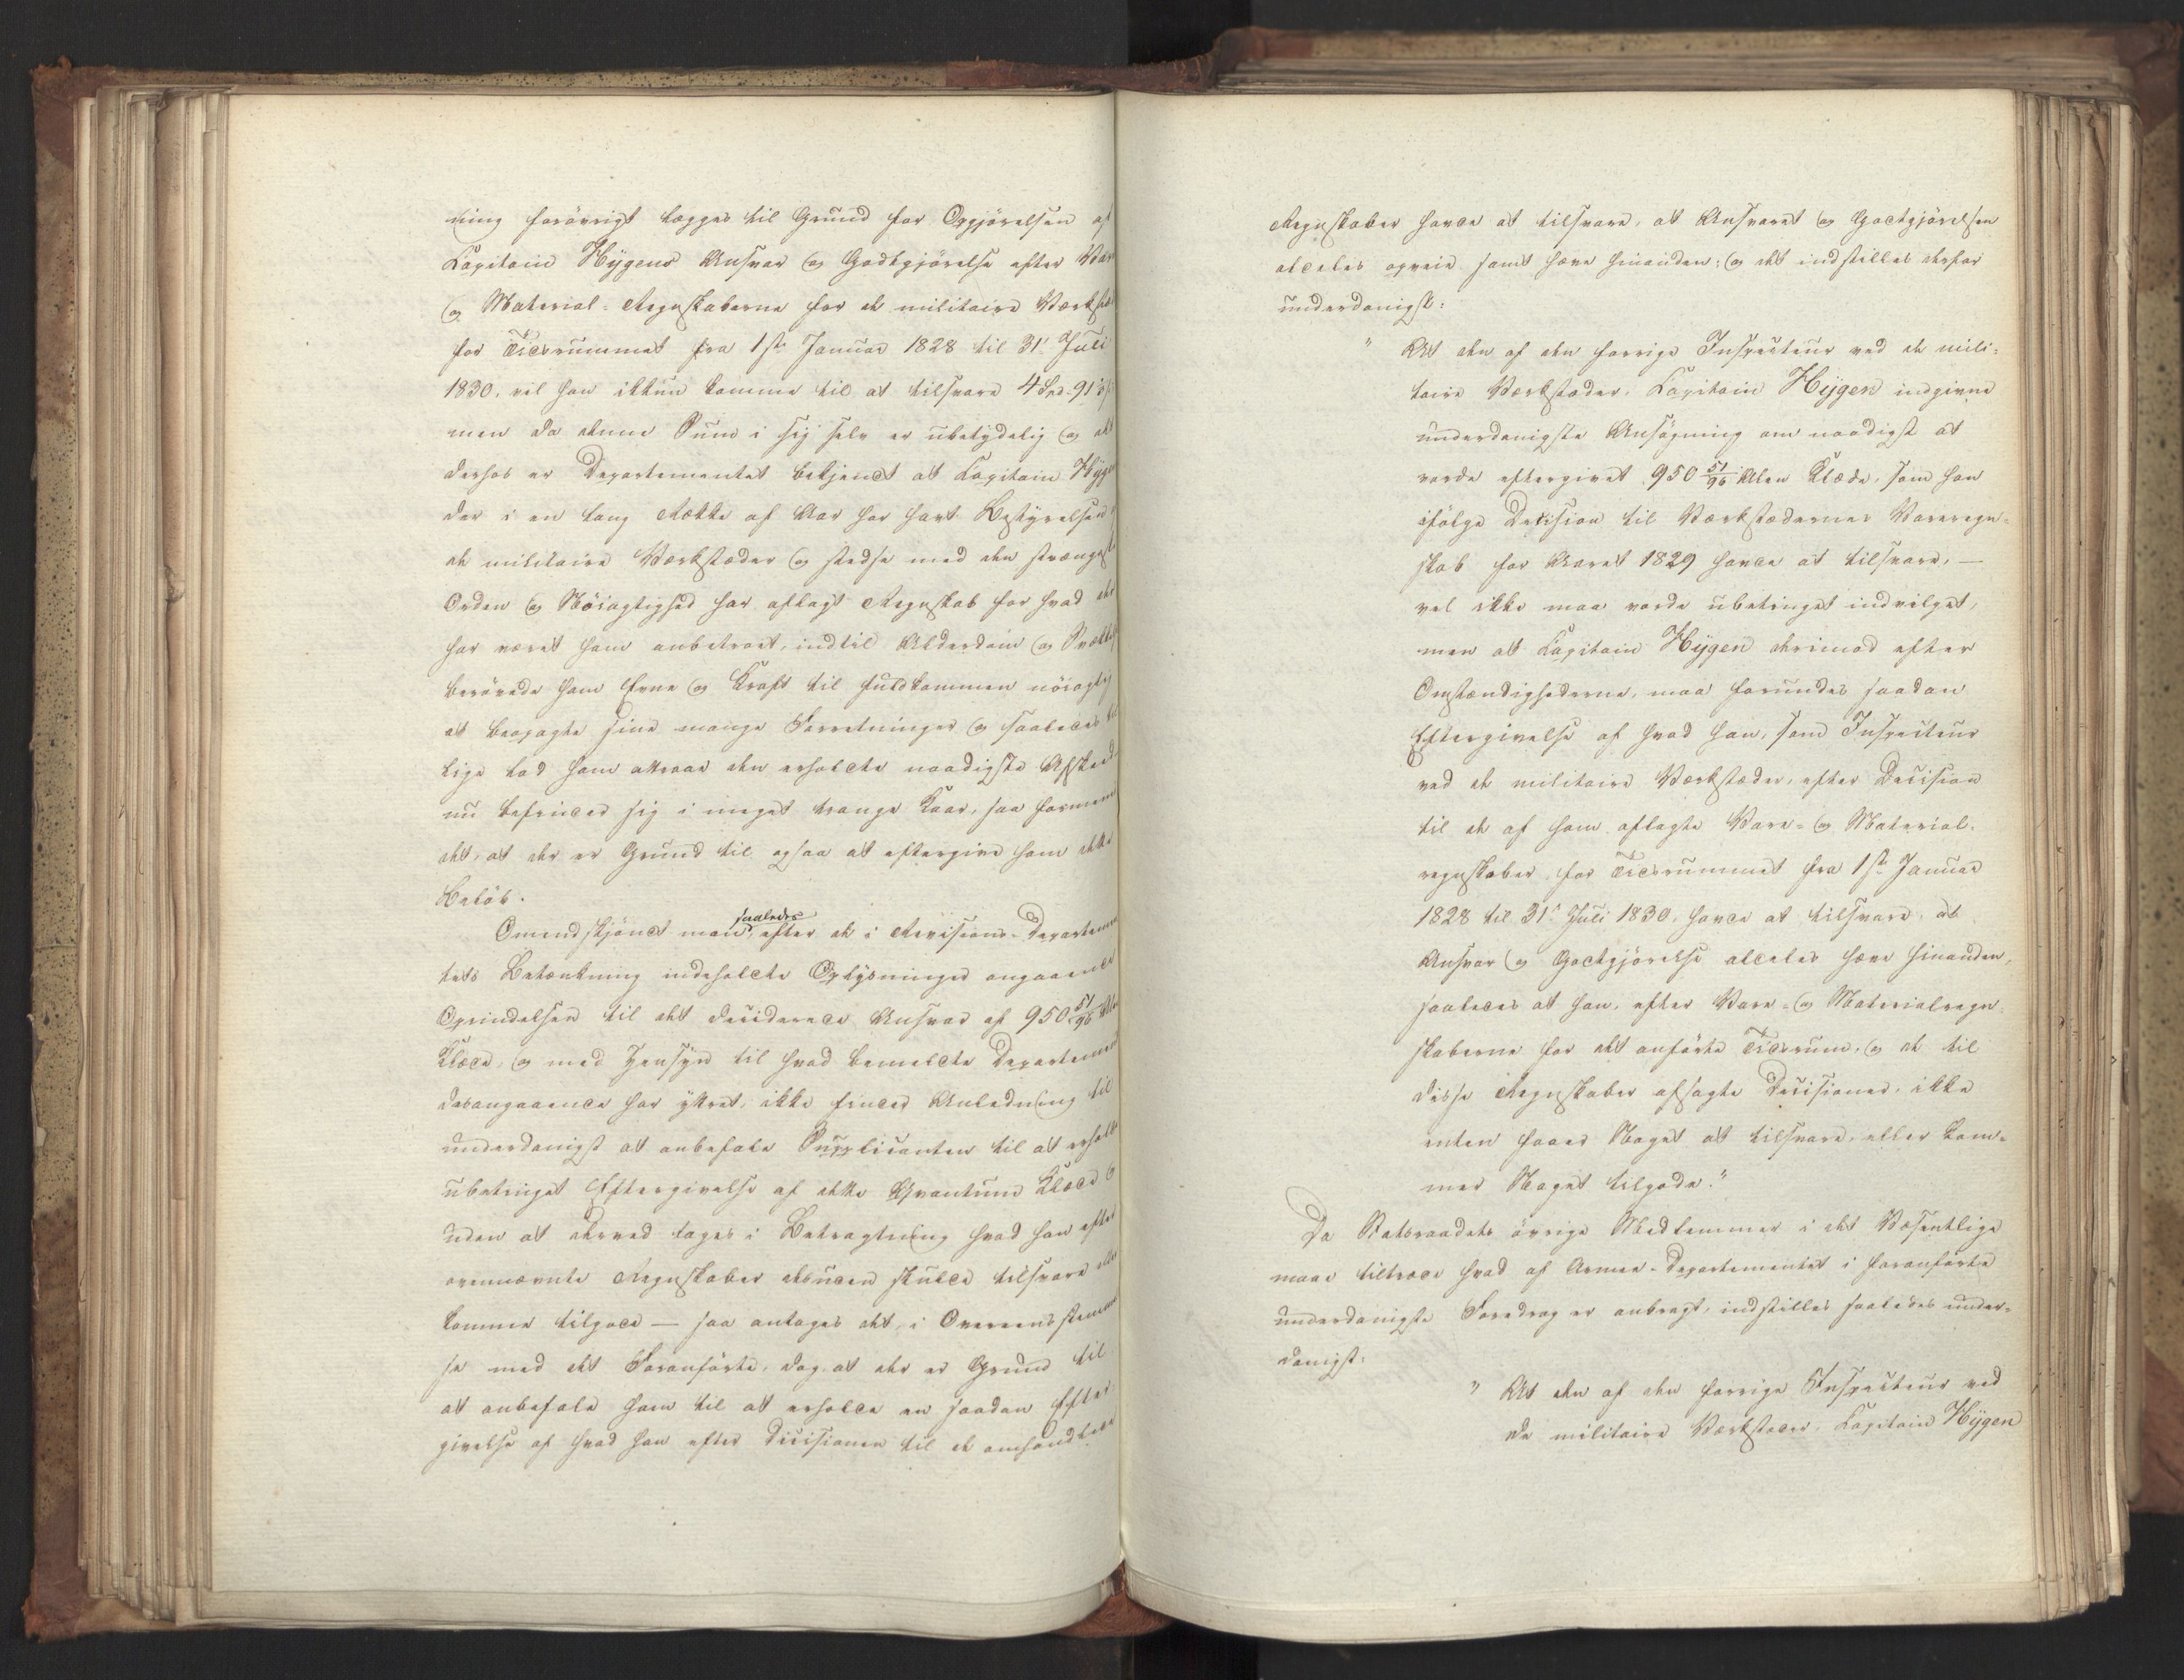 ning forövrigt lægges til Grund for Opgjörelsen af
Capitain Hÿgens Ansvar og Godtgjörelse efter Vare
og Material-Regnskaberne for de militaire Værkstæ
for Tidsrummet fra 1ste Januar 1828 til 31' Juli
1830, vil han ikkun komme til at tilsvare 4 Spd. 91 s
men da denne Sum i sig selv er ubetydelig og det
derhos er Departementet bekjendt at Capitain Hÿgen
der i en lang Række af Aar har havt Bestyrelsen
de militaire Værkstæder og stedse med den strængest
Orden og Nöiagtighed har aflagt Regnskab for hvad der
har været ham anbetroet, indtil Alderdom og Svækk
berövede ham Evne og Kraft til fuldkommen nöiagtig
at besörge sine mange Forretninger og saaledes
lige lod ham attraae den erholdte naadigste Afskeed
nu befinder sig i meget trange Kaar, saa formene
det, at der er Grund til ogsaa at eftergive ham dette
Belöb.
Omendskjöndt man saaledes, efter de i Revisions-Departemen
tets Betænkning indeholdte Oplysninger angaaende
Oprindelsen til det deciderede Ansvar af 950 51/96 Alen
Klæde, og med Hensyn til hvad bemeldte Departement
desangaaende har ÿttret, ikke finder Anledning til
underdanigst at anbefale Supplicanten til at erholde
ubetinget Eftergivelse af dette Qvantum Klæde
uden at derved tages i Betragtning hvad han efter
ovennævnte Regnskaber desuden skulde tilsvare eller
komme tilgode — saa antages det, i Overeensstemmel
se med det Foranförte, dog at der er Grund til
at anbefale ham til at erholde en saadan Efter
givelse af hvad han efter Decisionen til de omhandlede
Regnskaber havde at tilsvare, at Ansvaret og Godtgjörelsen
aldeles opveie samt hæve hinanden; og det indstilles derfor
underdanigst:
" At den af den forrige Inspecteur ved de mili-
taire Værkstæder, Capitain Hÿgen indgivne
underdanigste Ansögning om naadigst at
vorde eftergivet 950 51/96 Alen Klæde, som han
ifölge Decision til Værkstædernes Vareregn-
skab for Aaret 1829 havde at tilsvare, —
vel ikke maa vorde ubetinget indvilget,
men at Capitain Hÿgen derimod efter
Omstændighederne, maa forundes saadan
Eftergivelse af hvad han, som Inspecteur
ved de militaire Værkstæder, efter Decision
til de af ham aflagte Vare- og Material-
regnskaber for Tidsrummet fra 1ste Januar
1828 til 31' Juli 1830, havde at tilsvare, at
Ansvar og Godtgjörelse aldeles hæve hinanden,
saaledes at han, efter Vare- og Materialregn-
skaberne for det anförte Tidsrum, og de til
disse Regnskaber afsagte Decisioner, ikke
enten faaer Noget at tilsvare, eller kom-
mer Noget tilgode."
Da Statsraadets övrige Medlemmer i det Væsentlige
maae tiltræde hvad af Armee-Departementet i foranförte
underdanigste Foredrag er anbragt, indstilles saaledes under-
danigst:
" At den af den forrige Inspecteur ved
de militaire Værkstæder, Capitain Hÿgen